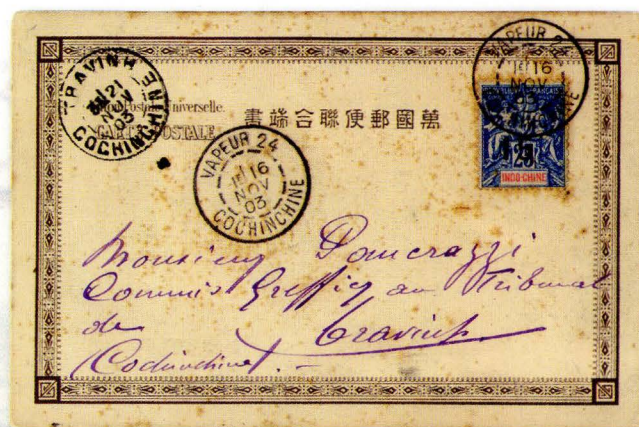 TRAVINH
21
NOV
03
COCHINCHINE
Union Postale Universelle.
CARTE POSTALE
萬國郵便聯合端書
VAPEUR 24
16
NOV
03
COCHINCHINE
VAPEUR 24
16
NOV
03
INDO-CHINE
Monsieur Pancrazzi
Commis Greffier au Tribunal
de Travinh
Cochinchine. -